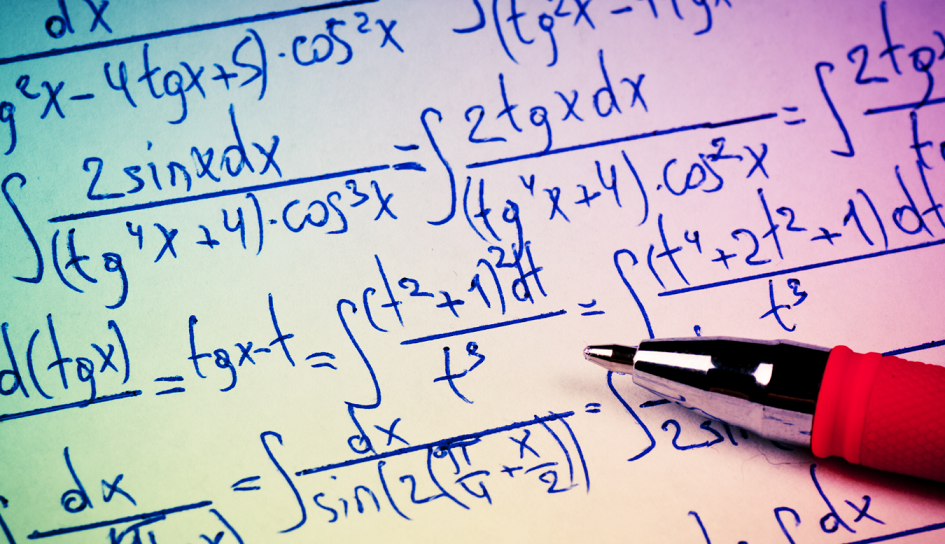 dx
g²x-4tgx+5)·cos²x ∫(tg²x-4tgx
∫ 2sinxdx / (tg⁴x+4)·cos³x = ∫ 2tgxdx / (tg⁴x+4)·cos²x = ∫ 2tg
d(tgx) = tgx-t = ∫ (t²+1)²dt / t³ = ∫ (t⁴+2t²+1)dt / t³
dx = ∫ dx / sin(2(π/4+x/2)) = ∫ / 2sin
∫dx